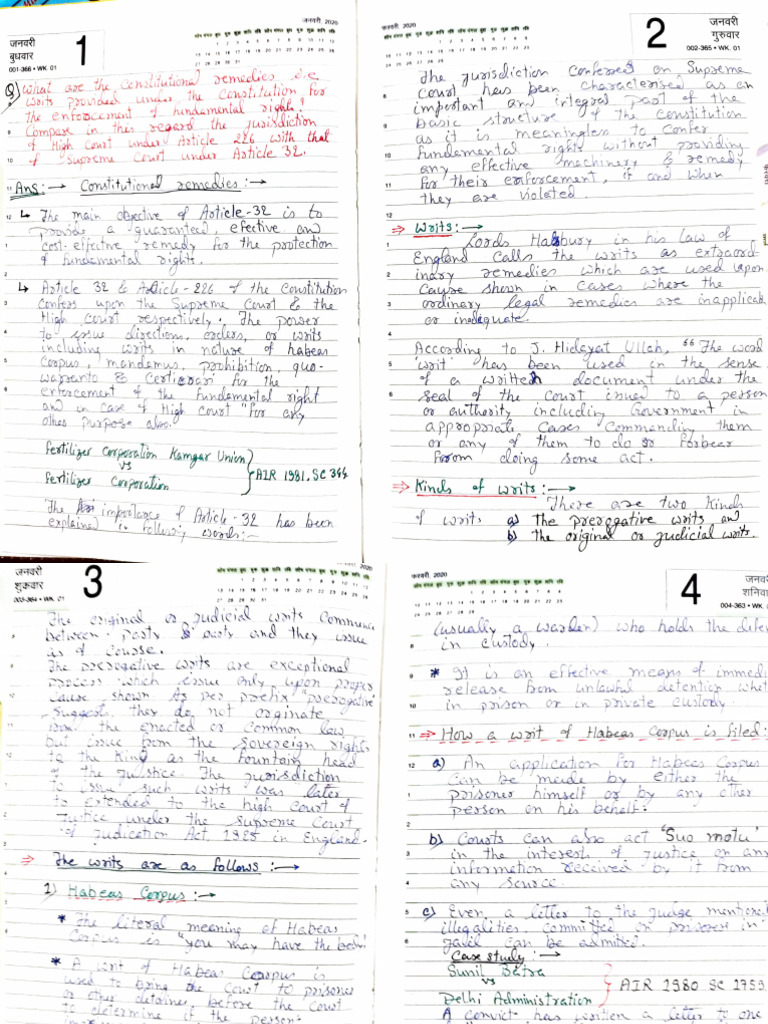 जनवरी
बुधवार
1
001-366 • WK 01
जनवरी 2020
Q) What are the constitutional remedies i.e.
writs provided under the Constitution for
the enforcement of fundamental right?
Compare in this regard the jurisdiction
of High Court under Article 226 with that
of Supreme Court under Article 32.
Ans:→ Constitutional remedies:→
↳ The main objective of Article-32 is to
provide a guaranteed, efective and
cost-effective remedy for the protection
of fundamental rights.
↳ Article 32 & Article-226 of the Constitution
confers upon the Supreme Court & the
High Court respectively. The power
to issue directions, orders, or writs
including writs in nature of habeas
corpus, mandamus, prohibition, quo-
warranto & Certiorari for the
enforcement of the fundamental right
and in case of High court "for any
other purpose also.
Fertilizer Corporation Kamgar Union
vs
Fertilizer Corporation
AIR 1981 SC 344
The importance of Article-32 has been
explained in following words:-
फरवरी, 2020
2
जनवरी
गुरुवार
002-365 • WK 01
The jurisdiction conferred on Supreme
Court has been characterised as an
important and integral part of the
basic structure of the constitution
as it is meaningless to confer
fundamental rights without providing
any effective machinery & remedy
for their enforcement, if and when
they are violated.
⇒ Writs:→
Lords Halsbury in his law of
England calls the writs as extraord
inary remedies which are used upon
cause shown in cases where the
ordinary legal remedies are inapplicab
or inadequate.
According to J. Hidayat Ullah, "The word
'writ' has been used in the sense
of a written document under the
seal of the Court issued to a person
or authority including Government in
appropriate cases Commanding them
or any of them to do or forbear
from doing some act.
⇒ Kinds of writs:→
There are two kinds
of writs a) The prerogative writs and
b) the original or judicial writs.
जनवरी
शुक्रवार
3
003-364 • WK 01
2020
The original or judicial writs commence
between party & party and they issue
as of course.
The prerogative writs are exceptional
process which issue only upon proper
cause shown. As per prefix "prerogative"
suggest they do not orginate
from the enacted or common law
but issue from the sovereign rights
to the King as the fountain head
of the justice. The jurisdiction
to issue such writs was later
to extended to the high Court of
Justice under the Supreme Court
of Judication Act, 1925 in England.
⇒ The writs are as follows:→
1) Habeas Corpus:→
* The literal meaning of Habeas
Corpus is "you may have the body
* A writ of Habeas Corpus is
used to bring the Court to prisoner
or other detainee, before the Court
to determine if the person
फरवरी, 2020
4
जनवरी
शनिवार
004-363 • WK
(usually a warden) who holds the defen
in custody.
* It is an effective means of immedi
release from unlawful detention whet
in prison or in private custody.
⇒ How a writ of Habeas Corpus is filed:
a) An application for Habeas Corpus
can be made by either the
prisoner himself or by any other
person on his behalf.
b) Courts can also act "Suo motu"
in the interest of justice on any
information received by it from
any source.
c) Even, a letter to the judge mentioned
illegalities, committed on prisoner in
jail can be admitted.
Case study:→
Sunil Batra
vs
Delhi Administration
AIR 1980 SC 1759
A convict has written a letter to one